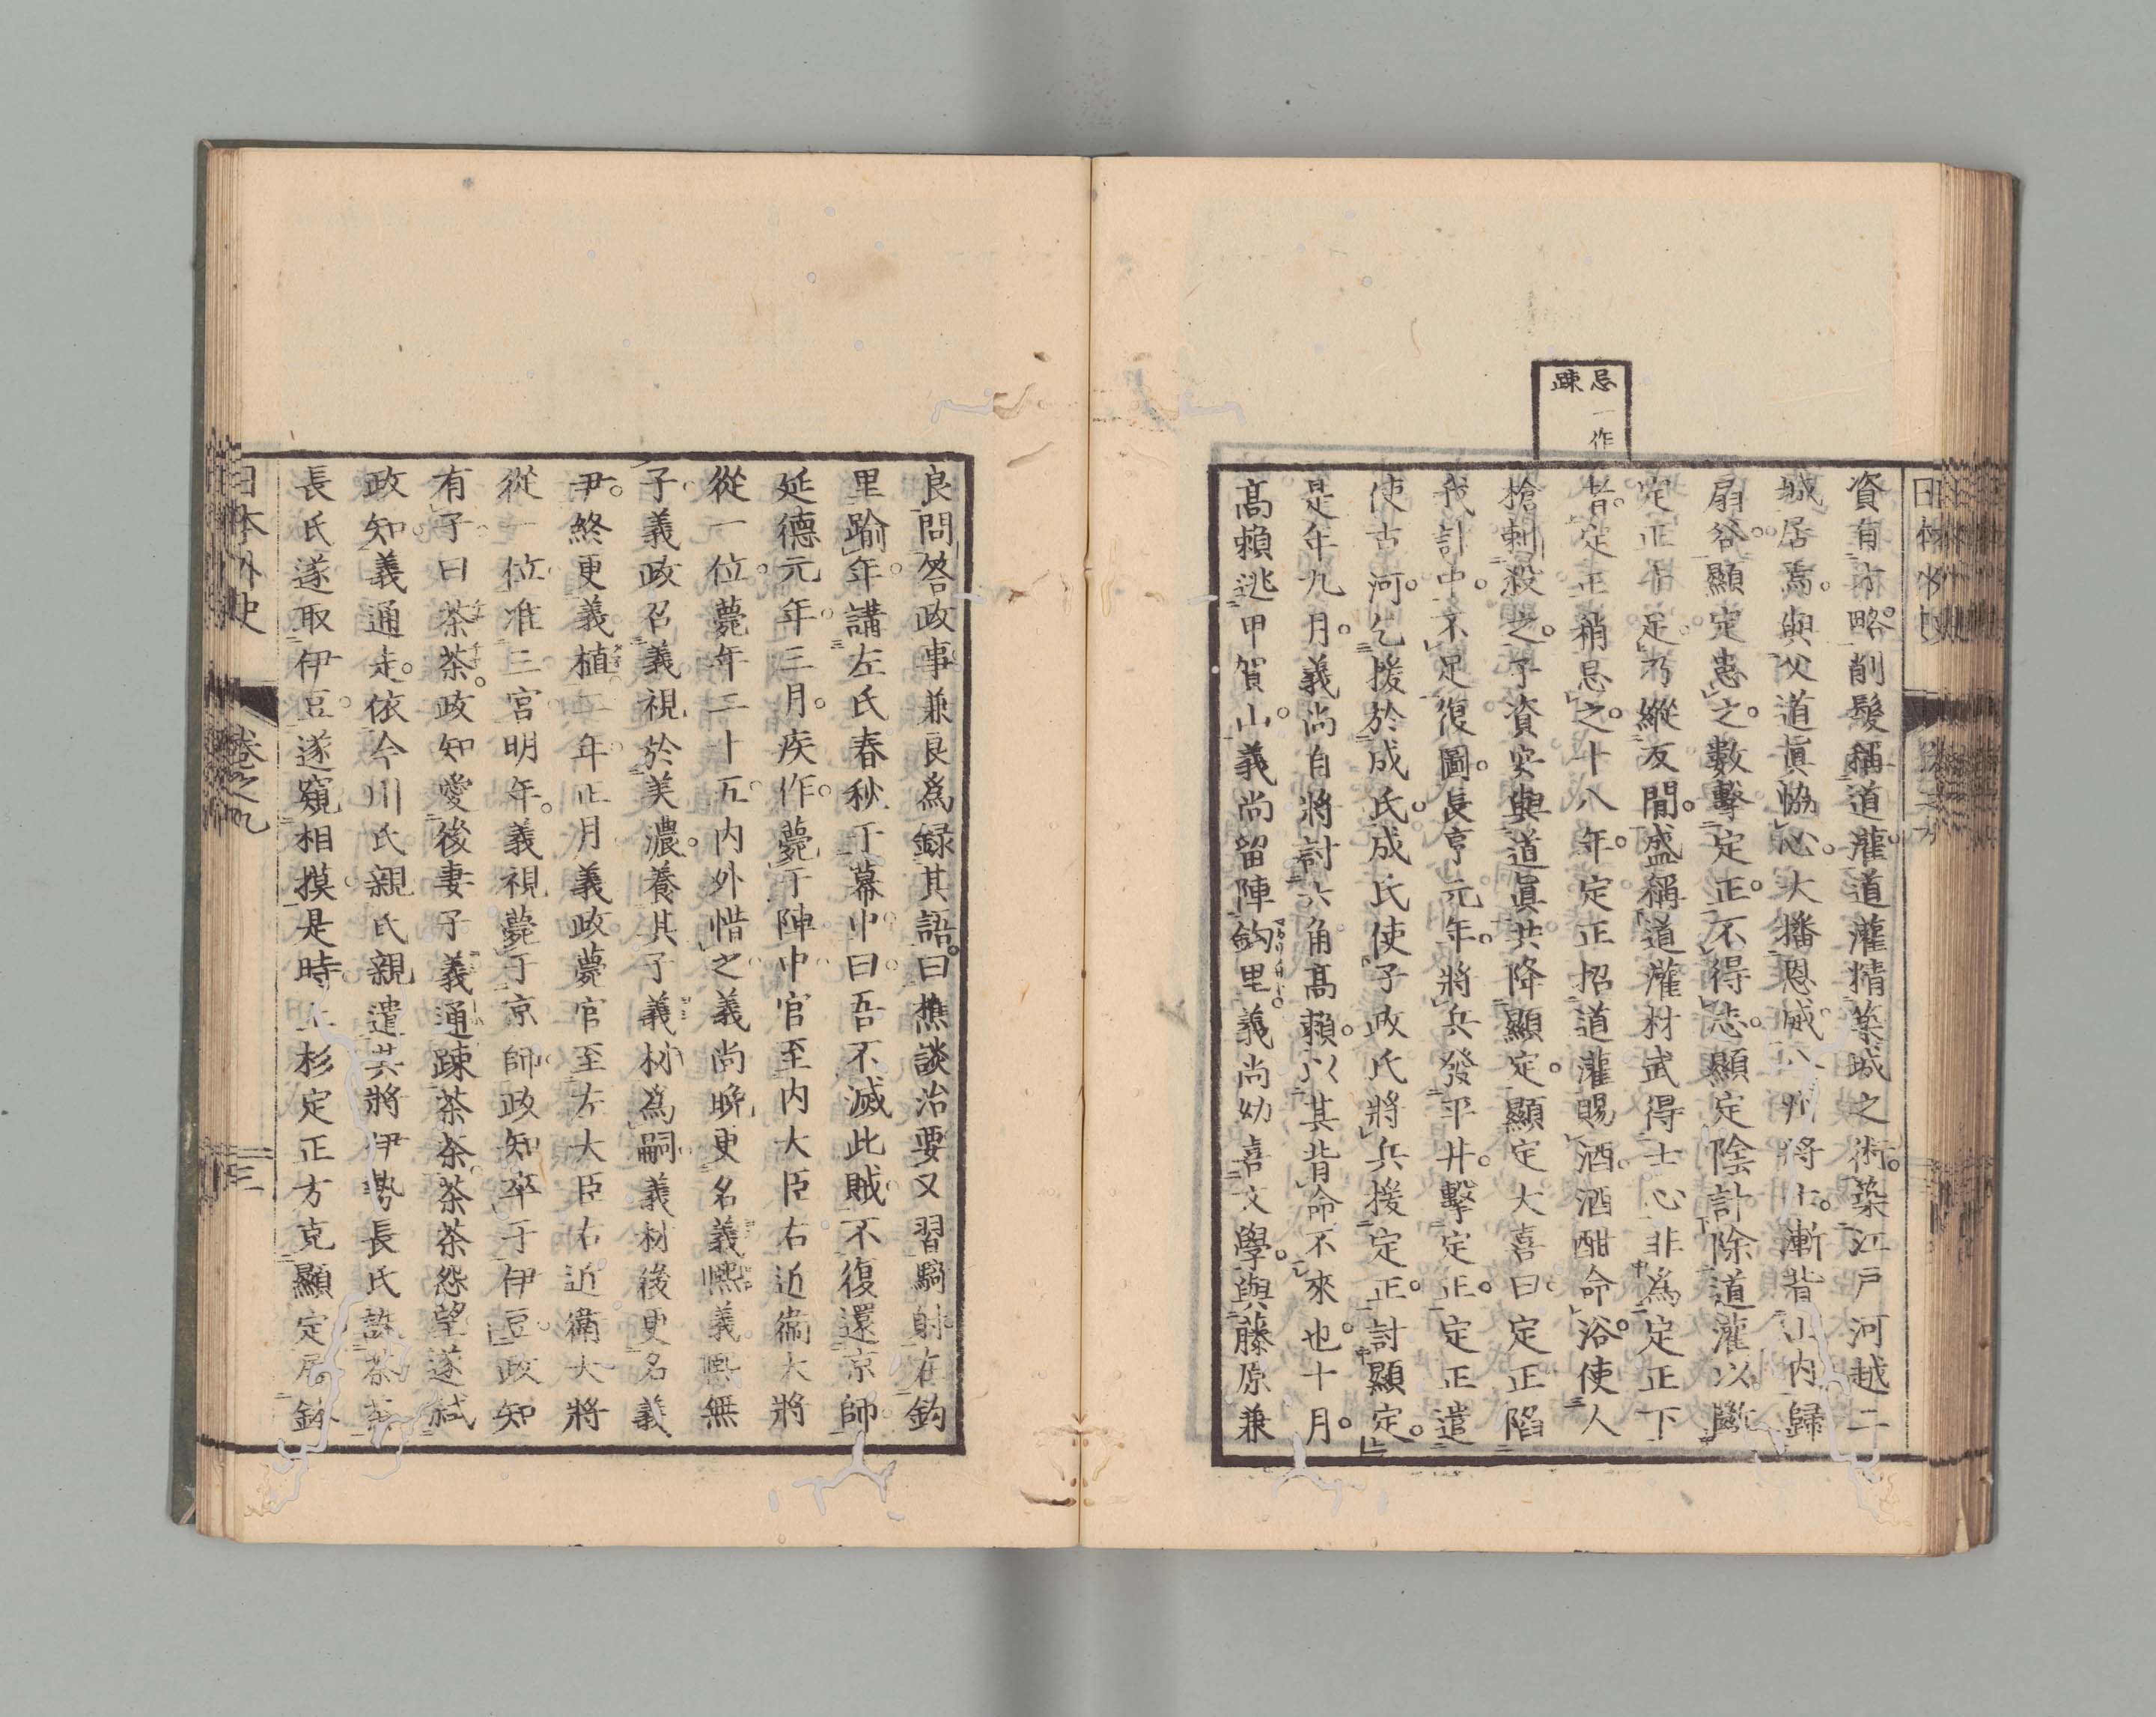 忌一作
疎
資有方略。削髮稱道灌。道灌精築城之術。築江戸河越二
城居焉。與父道眞協心。大播恩威。八州將士。漸背山内歸
扇谷。顯定患之。數擊定正。不得志。顯定陰計除道灌以斷
定正手足。乃縱反間。盛稱道灌材武得士心。非爲定正下
者。定正稍忌之。十八年。定正招道灌賜酒。酒酣命浴。使人
槍刺殺之。子資安與道眞共降顯定。顯定大喜曰。定正陷
我計中。不足復圖。長亨元年。將兵發平井。擊定正。定正遣
使古河。乞援於成氏。成氏使子政氏將兵援定正。討顯定。
是年九月。義尚自將討六角高賴。以其背命不來也。十月。
高賴逃甲賀山。義尚留陣鈎里。義尚幼喜文學。與藤原兼
良問答政事。兼良爲録其語。曰樵談治要。又習騎射。在鈎
里踰年。講左氏春秋于幕中。曰吾不滅此賊。不復還京師
延德元年。三月。疾作。薨于陣中。官至内大臣右近衞大將
從一位。薨年二十五。内外惜之。義尚晩更名義熙。義熙無
子。義政召義視於美濃。養其子義材爲嗣。義材後更名義
尹。終更義植。二年正月。義政薨。官至左大臣右近衞大將
從一位。准三宮。明年。義視薨于京師。政知卒于伊豆。政知
有子曰茶茶。政知愛後妻子義通。疎茶茶。茶茶怨望。遂弑
政知。義通走。依今川氏親。氏親遣其將伊勢長氏誅茶茶
長氏遂取伊豆。遂窺相摸。是時。上杉定正方克顯定。居鉢
日本外史　卷之九　三